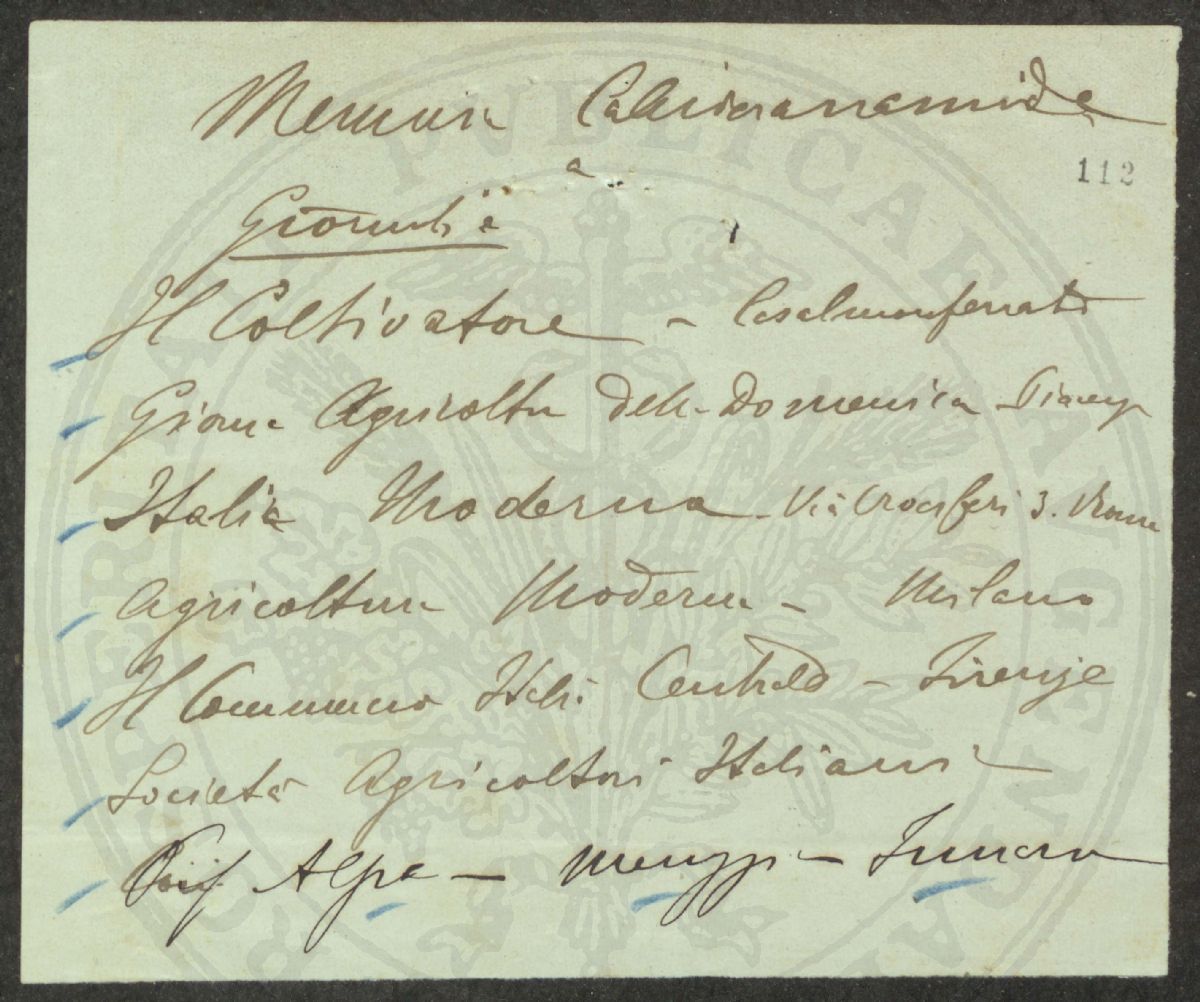 Memoria Calciocianamide
112
a
Giornali
Il Coltivatore - Casalmonferrato
Giorn. Agricoltu della Domenica Piacenza
Italia Moderna - Via Crociferi 3. Roma
Agricoltura Moderna - Milano
Il Commercio Itali. Centrale - Firenze
Società Agricoltori Italiani
Prof Alpe - Menozzi -